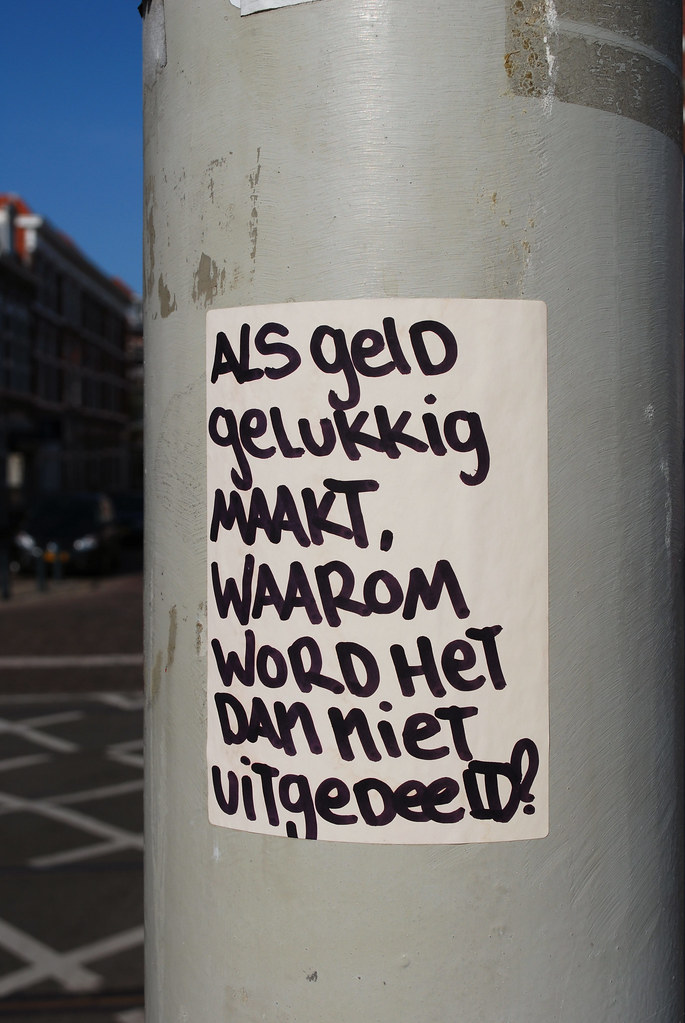 ALS geld
gelukkig
MAAKT,
WAAROM
WORD HeT
DAN nieT
uiTgeDeelD?